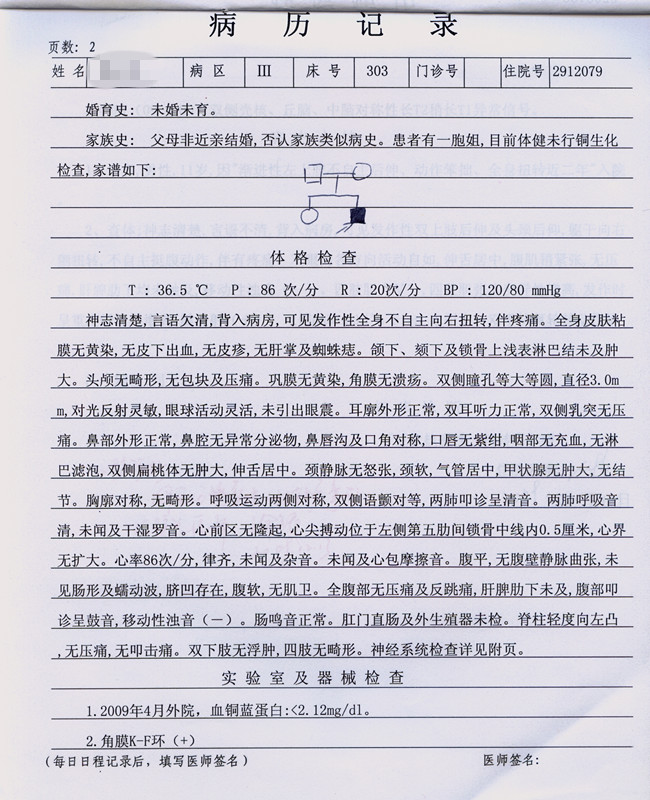 病 历 记 录
页数: 2
姓 名 病 区 Ⅲ 床 号 303 门诊号 住院号 2912079
婚育史: 未婚未育。
家族史: 父母非近亲结婚,否认家族类似病史。患者有一胞姐,目前体健未行铜生化
检查,家谱如下:
体 格 检 查
T : 36.5 ℃ P : 86 次/分 R : 20次/分 BP : 120/80 mmHg
神志清楚,言语欠清,背入病房,可见发作性全身不自主向右扭转,伴疼痛。全身皮肤粘
膜无黄染,无皮下出血,无皮疹,无肝掌及蜘蛛痣。颌下、颏下及锁骨上浅表淋巴结未及肿
大。头颅无畸形,无包块及压痛。巩膜无黄染,角膜无溃疡。双侧瞳孔等大等圆,直径3.0m
m,对光反射灵敏,眼球活动灵活,未引出眼震。耳廓外形正常,双耳听力正常,双侧乳突无压
痛。鼻部外形正常,鼻腔无异常分泌物,鼻唇沟及口角对称,口唇无紫绀,咽部无充血,无淋
巴滤泡,双侧扁桃体无肿大,伸舌居中。颈静脉无怒张,颈软,气管居中,甲状腺无肿大,无结
节。胸廓对称,无畸形。呼吸运动两侧对称,双侧语颤对等,两肺叩诊呈清音。两肺呼吸音
清,未闻及干湿罗音。心前区无隆起,心尖搏动位于左侧第五肋间锁骨中线内0.5厘米,心界
无扩大。心率86次/分,律齐,未闻及杂音。未闻及心包摩擦音。腹平,无腹壁静脉曲张,未
见肠形及蠕动波,脐凹存在,腹软,无肌卫。全腹部无压痛及反跳痛,肝脾肋下未及,腹部叩
诊呈鼓音,移动性浊音(—)。肠鸣音正常。肛门直肠及外生殖器未检。脊柱轻度向左凸
,无压痛,无叩击痛。双下肢无浮肿,四肢无畸形。神经系统检查详见附页。
实 验 室 及 器 械 检 查
1.2009年4月外院，血铜蓝蛋白:<2.12mg/dl。
2.角膜K-F环(+)
(每日日程记录后，填写医师签名) 医师签名: